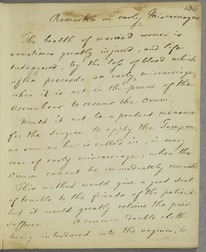 136
Remarks on early Miscarriages
The health of married women is
sometimes greatly injured, and life
endangered, by the loss of blood which
often precedes an early miscarriage,
when it is not in the power of the
Accoucheur to remove the Ovum.
Would it not be a prudent measure
for the Surgeon to apply the Tampon
as soon as he is called in, in every
case of early miscarriage, when the
Ovum cannot be immediately removed
This method would give a good deal
of trouble to the friends of the patient
but it would greatly relieve the poor
sufferer. A common double cloth
being introduced into the vagina, is